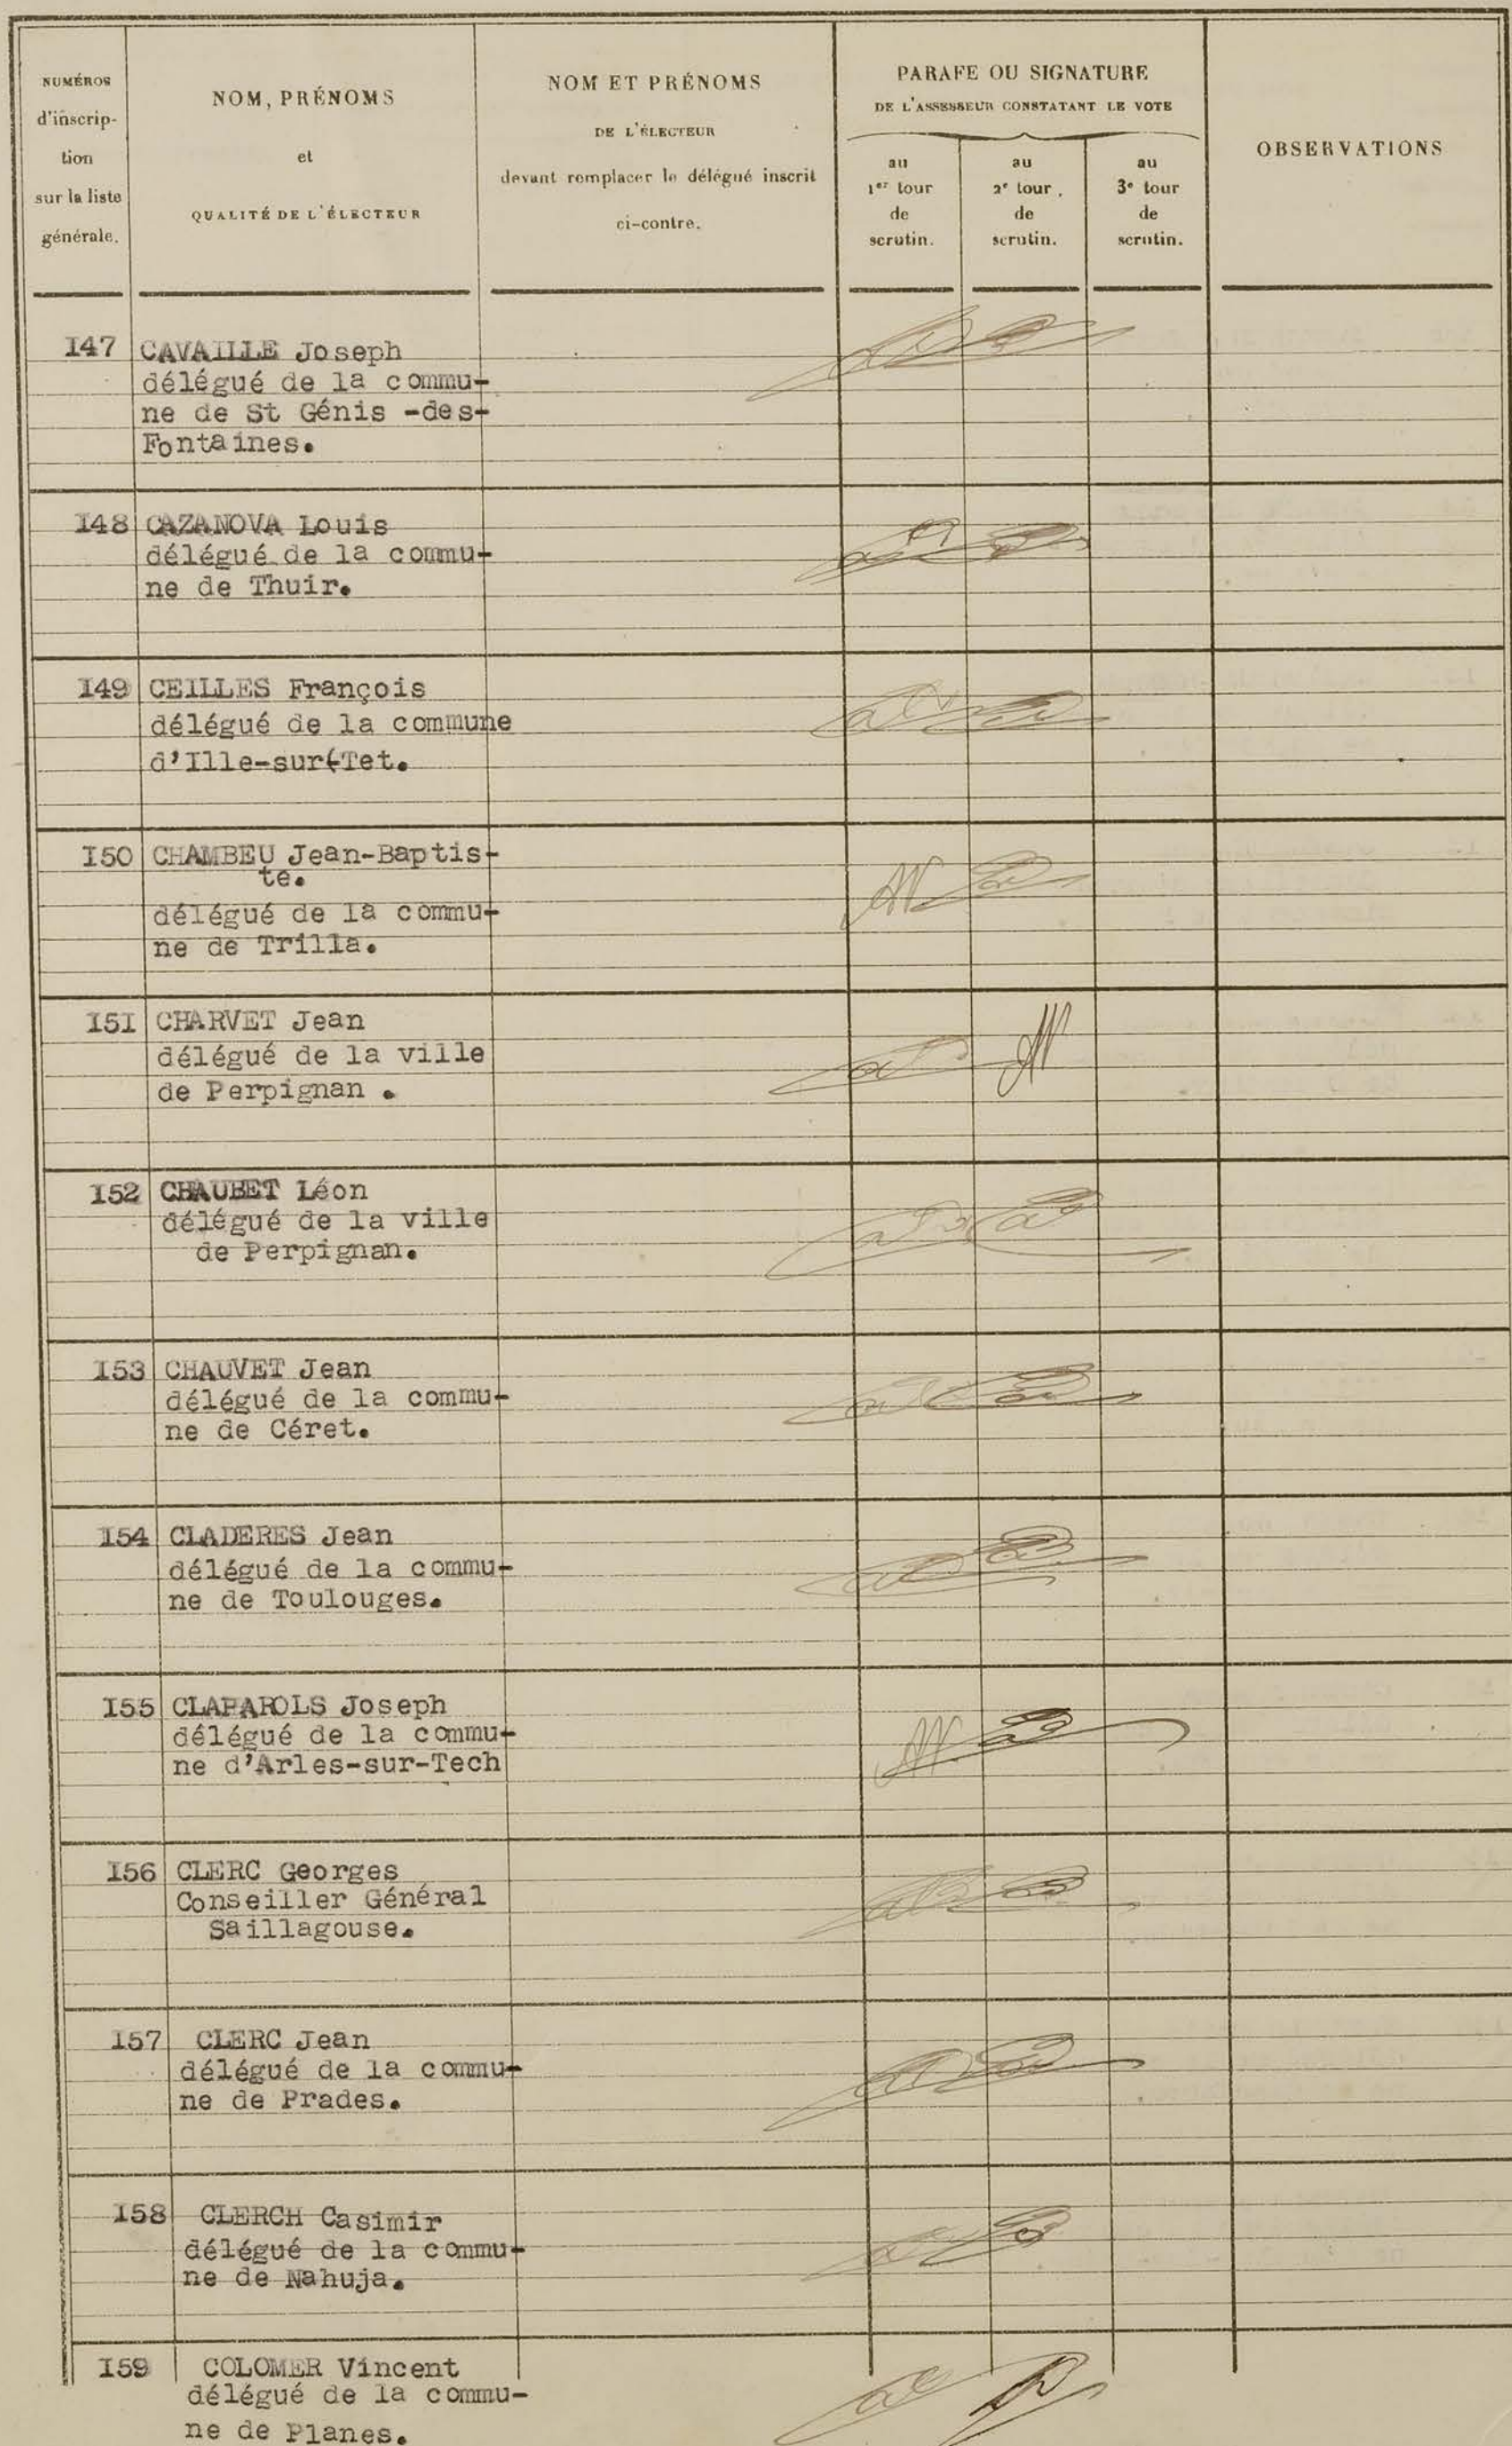 NUMÉROS
d'inscrip-
tion
sur la liste
générale.
NOM, PRÉNOMS
et
QUALITÉ DE L'ÉLECTEUR
NOM ET PRÉNOMS
DE L'ÉLECTEUR
devant remplacer le délégué inscrit
ci-contre.
PARAFE OU SIGNATURE
DE L'ASSESSEUR CONSTATANT LE VOTE
au
1er tour
de
scrutin.
au
2e tour.
de
scrutin.
au
3e tour
de
scrutin.
OBSERVATIONS
I47 CAVAILLE Joseph
délégué de la commu-
ne de St Génis -des-
Fontaines.
I48 CAZANOVA Louis
délégué de la commu-
ne de Thuir.
I49 CEILLES François
délégué de la commune
d'Ille-sur(Tet.
I50 CHAMBEU Jean-Baptis-
te.
délégué de la commu-
ne de Trilla.
I5I CHARVET Jean
délégué de la ville
de Perpignan .
I52 CHAUBET Léon
délégué de la ville
de Perpignan.
I53 CHAUVET Jean
délégué de la commu-
ne de Céret.
I54 CLADERES Jean
délégué de la commu-
ne de Toulouges.
I55 CLAPAROLS Joseph
délégué de la commu-
ne d'Arles-sur-Tech
I56 CLERC Georges
Conseiller Général
Saillagouse.
I57 CLERC Jean
délégué de la commu-
ne de Prades.
I58 CLERCH Casimir
délégué de la commu-
ne de Nahuja.
I59 COLOMER Vincent
délégué de la commu-
ne de Planes.